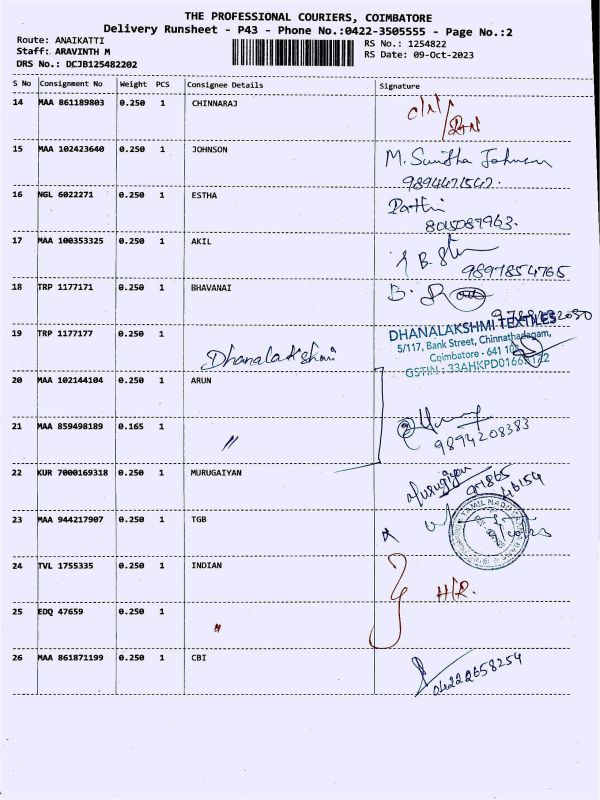 THE PROFESSIONAL COURIERS, COIMBATORE
Delivery Runsheet - P43 - Phone No.:0422-3505555 - Page No.:2
Route: ANAIKATTI
RS No.: 1254822
Staff: ARAVINTH M
RS Date: 09-Oct-2023
DRS No.: DCJB125482202
S No Consignment No Weight PCS Consignee Details Signature
14 MAA 861189803 0.250 1 CHINNARAJ
15 MAA 102423640 0.250 1 JOHNSON M. Sunitha Johnson
9894471542.
16 NGL 6022271 0.250 1 ESTHA
8015087963.
17 MAA 100353325 0.250 1 AKIL
9897854765
18 TRP 1177171 0.250 1 BHAVANAI B.
19 TRP 1177177 0.250 1 Dhanalakshmi
DHANALAKSHMI TEXTILES
5/117, Bank Street, Chinnathadagam,
Coimbatore - 641
GSTIN : 33AHKPD01
20 MAA 102144104 0.250 1 ARUN
21 MAA 859498189 0.165 1 "
9894208383
22 KUR 7000169318 0.250 1 MURUGAIYAN Murugiyan
97865
46154
23 MAA 944217907 0.250 1 TGB
TAMIL NADU
24 TVL 1755335 0.250 1 INDIAN H/R.
25 EDQ 47659 0.250 1 "
26 MAA 861871199 0.250 1 CBI
04222658254